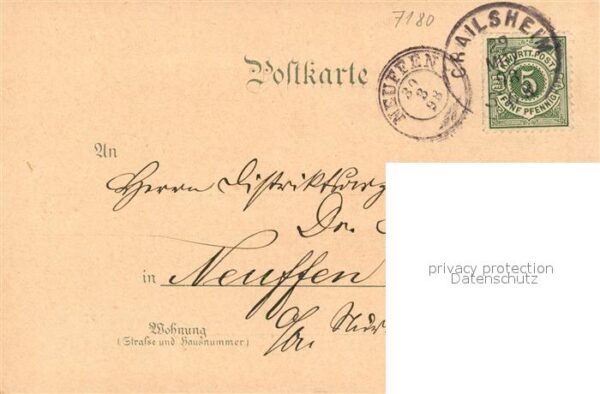 7180
CRAILSHEIM
K. WÜRTT. POST
5
FÜNF PFENNIG
NEUFFEN
30
3
98
Postkarte
An
Herrn Distriktsarzt
Dr.
in Neuffen
privacy protection
Datenschutz
Wohnung
(Straße und Hausnummer)